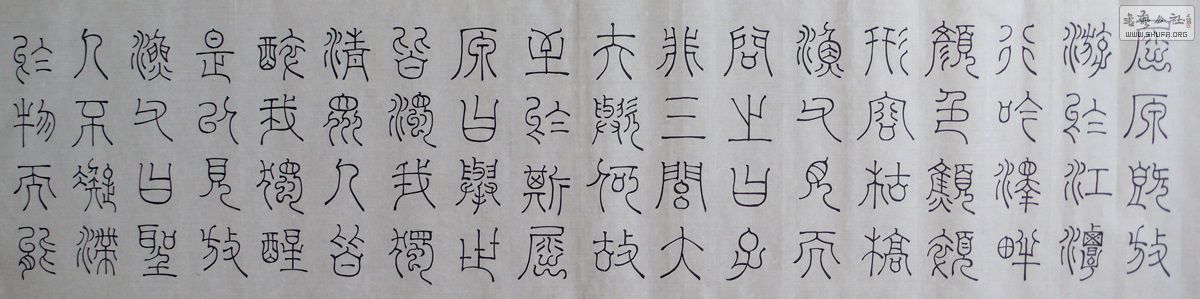 屈原既放
游於江潭
行吟澤畔
顏色顦顇
形容枯槁
漁父見而
問之曰子
非三閭大
夫歟何故
至於斯屈
原曰舉世
皆濁我獨
清眾人皆
醉我獨醒
是以見放
漁父曰聖
人不凝滯
於物而能
WWW.SHUFA.ORG